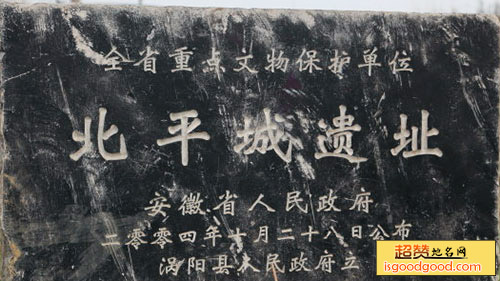 全省重点文物保护单位
北平城遗址
安徽省人民政府
二零零四年十月二十八日公布
涡阳县人民政府立
超赞地名网
isgoodgood.com